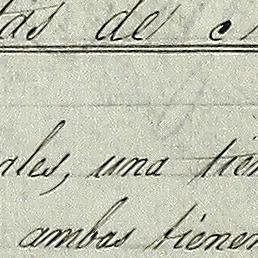 tas de
ales, una tien
ambas tienen